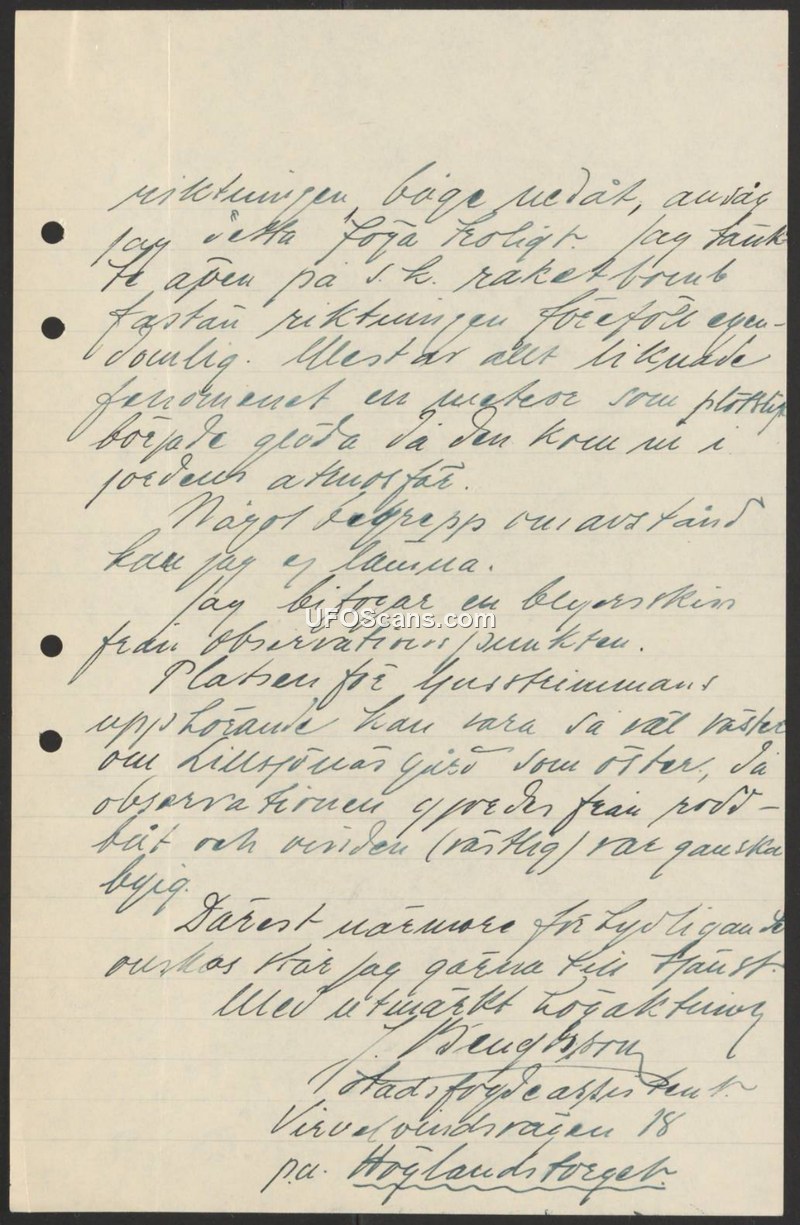 riktningen, båge nedåt, ansåg
jag detta föga troligt. Jag tänk-
te även på s.k. raketbomb
fastän riktningen föreföll egen-
domlig. Mest av allt liknade
fenomenet en meteor som plötsligt
började glöda då den kom in i
jordens atmosfär.
Något begrepp om avstånd
kan jag ej lämna.
Jag bifogar en blyertsskiss
från observationspunkten.
UFOScans.com
Platsen för ljusstrimmans
upphörande kan vara så väl väster
om Lillsjönäs gård som öster, då
observationen gjordes från rodd-
båt och vinden (västlig) var ganska
byig.
Därest närmare förtydligande
önskas står jag gärna till tjänst.
Med utmärkt högaktning
J. Bengtsson
Stadsfogdeassistent.
Virvelvindsvägen 18
p.a. Höglandstorget.